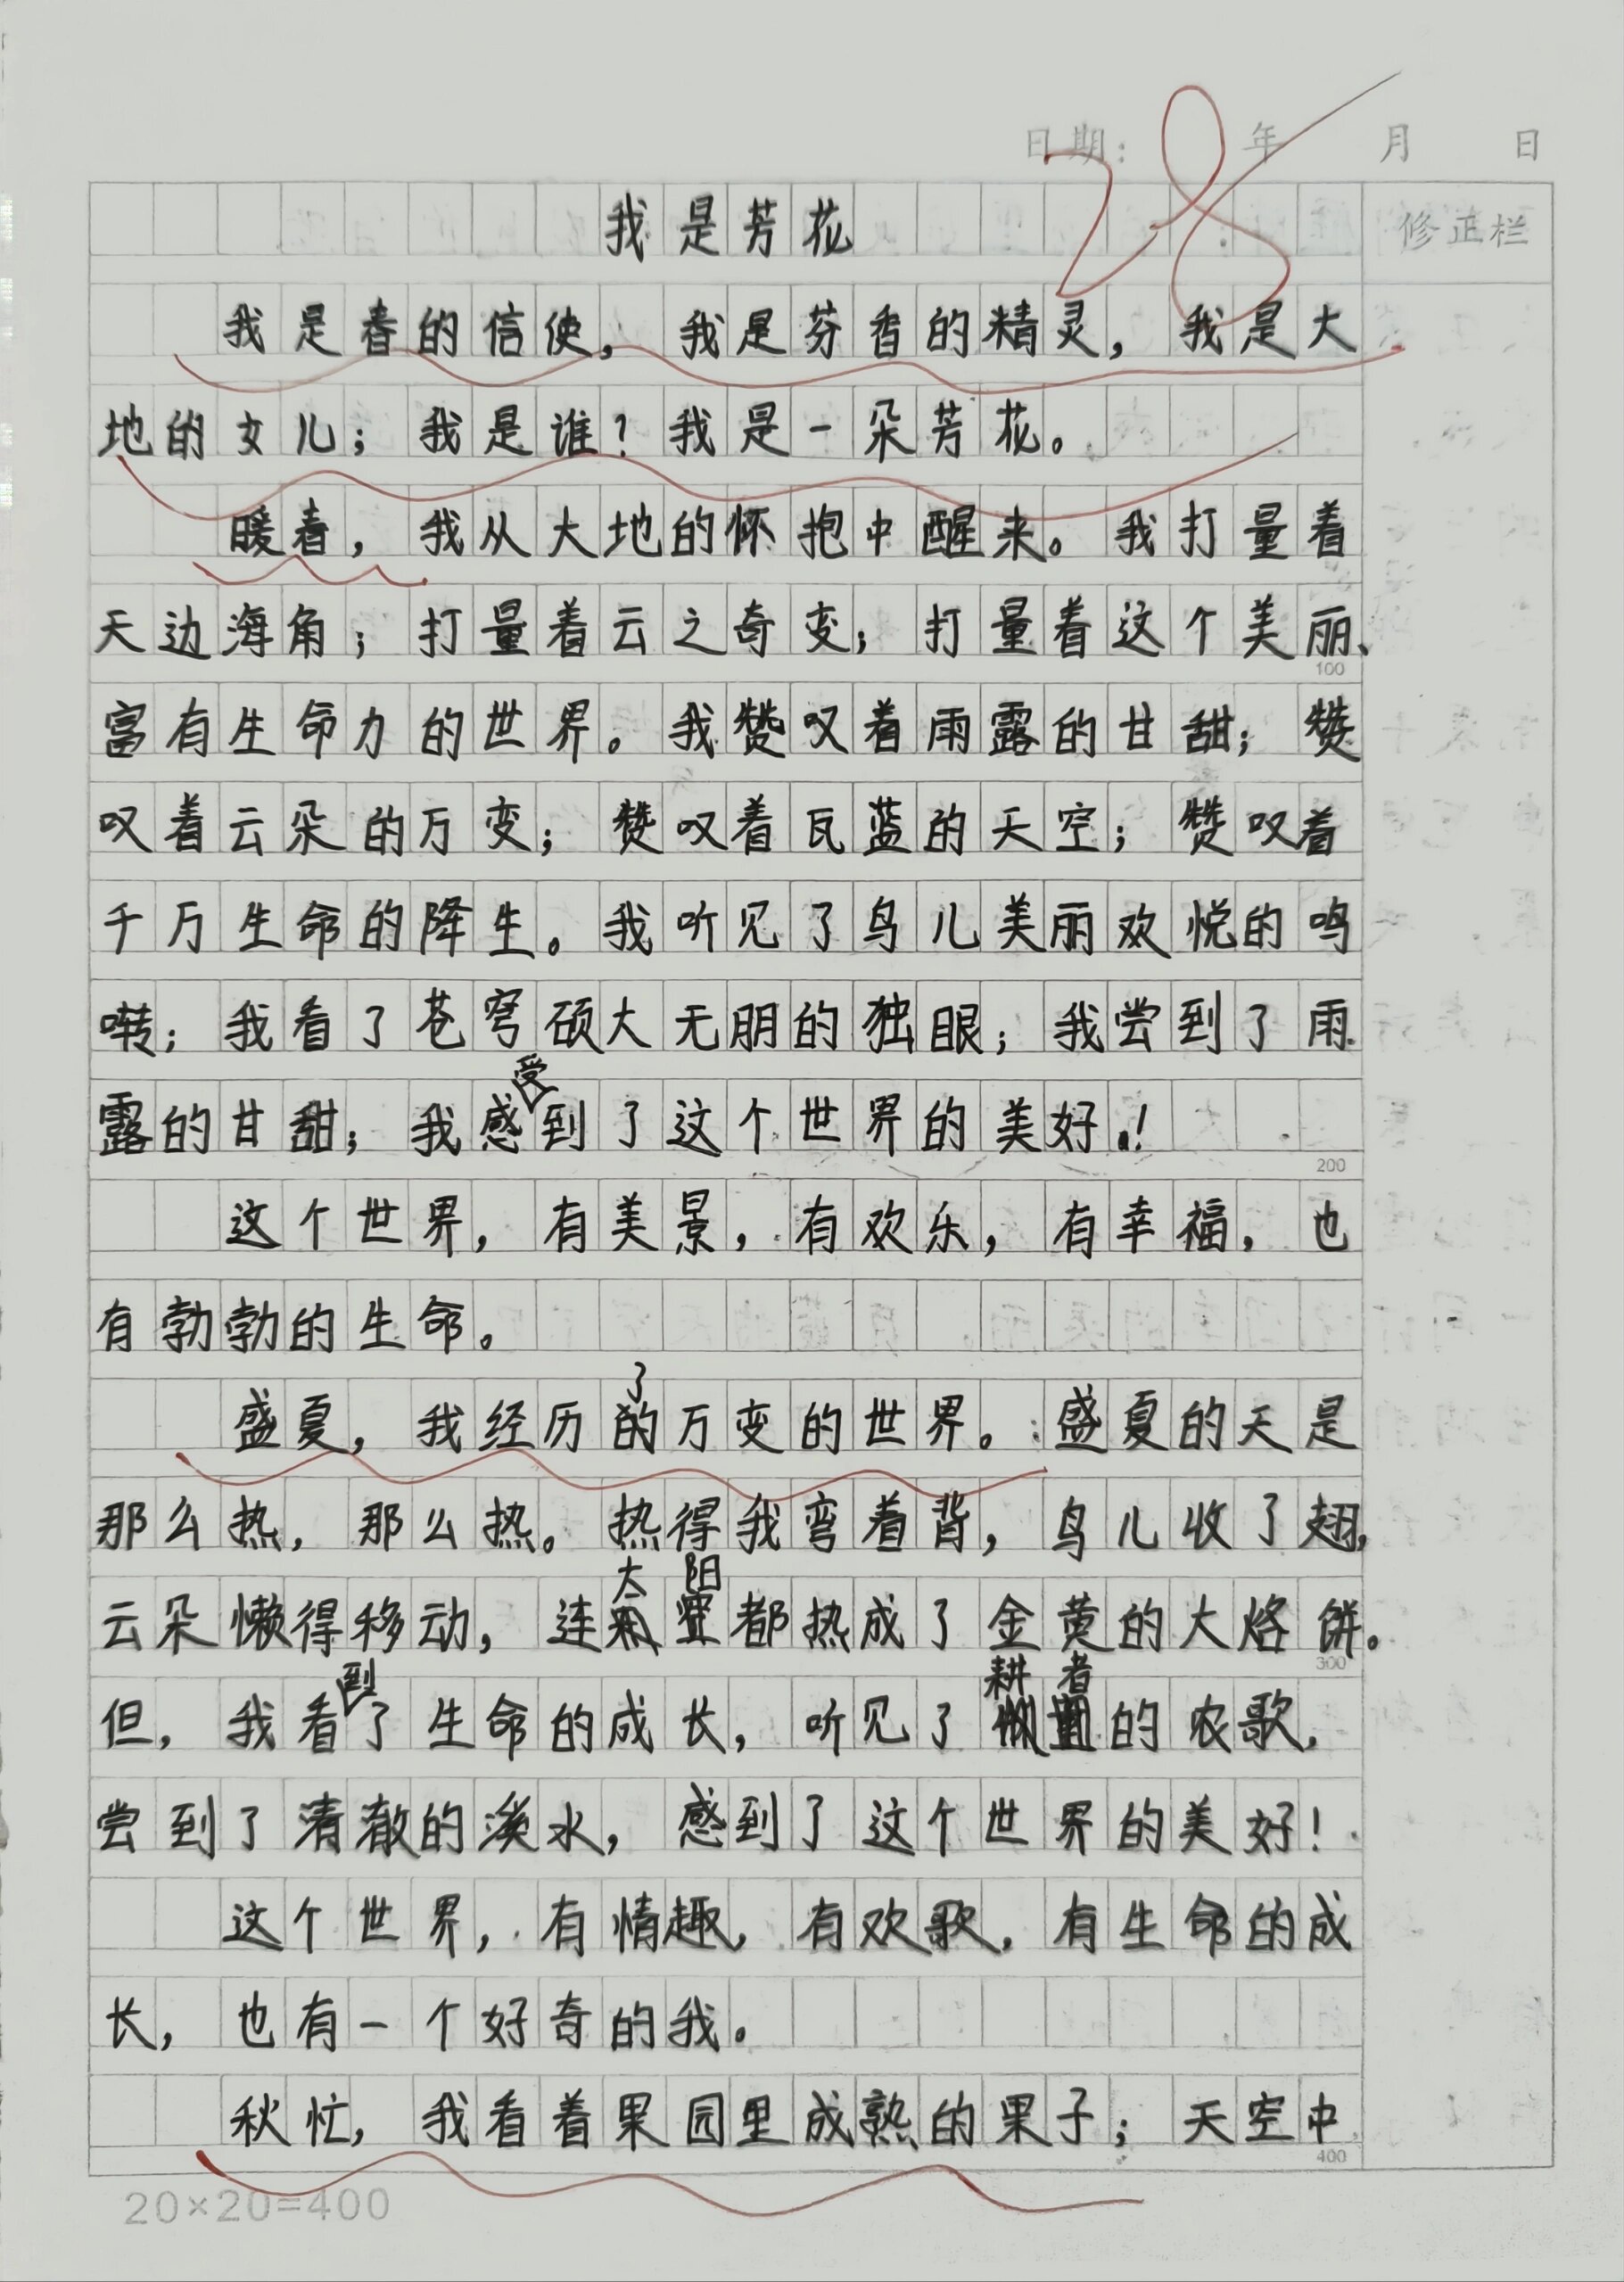 28
日期： 年 月 日
我是芳花
修正栏
我是春的信使，我是芬香的精灵，我是大
地的女儿；我是谁？我是一朵芳花。
暖春，我从大地的怀抱中醒来。我打量着
天边海角；打量着云之奇变；打量着这个美丽、
100
富有生命力的世界。我赞叹着雨露的甘甜；赞
叹着云朵的万变；赞叹着瓦蓝的天空；赞叹着
千万生命的降生。我听见了鸟儿美丽欢悦的鸣
啭；我看了苍穹硕大无朋的独眼；我尝到了雨
露的甘甜；我感受到了这个世界的美好！
200
这个世界，有美景，有欢乐，有幸福，也
有勃勃的生命。
盛夏，我经历了万变的世界。盛夏的天是
那么热，那么热。热得我弯着背，鸟儿收了翅，
云朵懒得移动，连太阳都热成了金黄的大烙饼。
300
但，我看到了生命的成长，听见了耕者的农歌，
尝到了清澈的溪水，感到了这个世界的美好！
这个世界，有情趣，有欢歌，有生命的成
长，也有一个好奇的我。
秋忙，我看着果园里成熟的果子；天空中
400
20×20=400